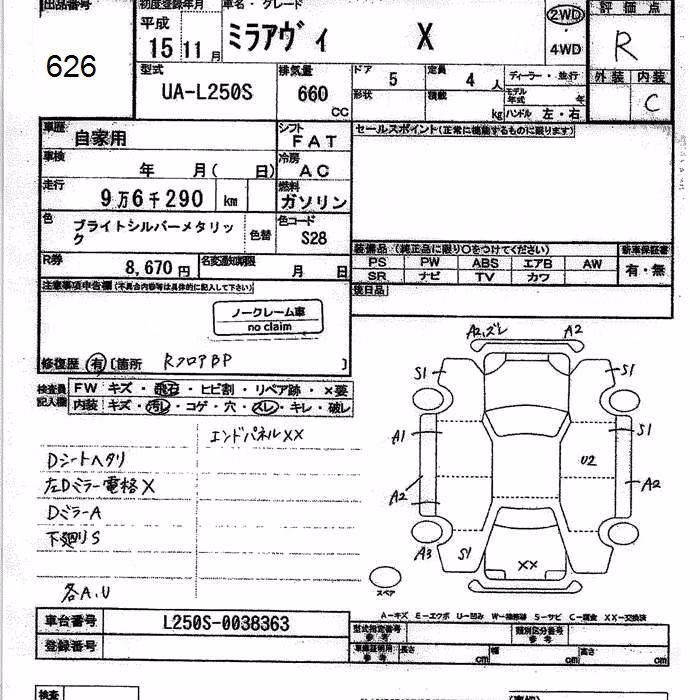 出品番号
626
初度登録年月
平成
15 11 月
車名・グレード
ミラアヴィ X
2WD
・
4WD
評価点
R
外装 内装
C
型式
UA-L250S
排気量
660
CC
ドア 5
定員 4 人
形状
積載 kg
ディーラー・並行
モデル年式 年
ハンドル 左・右
車歴
自家用
シフト
FAT
車検
年 月( 日)
冷房
AC
走行
9万6千290 km
燃料
ガソリン
色
ブライトシルバーメタリック
色替
色コード
S28
R券
8,670円
名変通知期限
月 日
セールスポイント(正常に機能するものに限ります)
装備品 (純正品に限り○をつけてください)
PS PW ABS エアB AW
SR ナビ TV カワ
新車保証書
有・無
後日品
注意事項申告欄(不具合内容等は具体的に記入して下さい)
ノークレーム車
no claim
修復歴 有 [箇所 RフロアBP ]
検査員記入欄
FW キズ・飛石・ヒビ割・リペア跡・×要
内装 キズ・汚レ・コゲ・穴・スレ・キレ・破レ
エンドパネルXX
Dシートヘタリ
左Dミラー電格X
DミラーA
下廻りS
各A,U
A2,ズレ A2
S1 S1
A1 S1
U2
A2 A2
A3 S1
XX
スペア
A-キズ E-エクボ U-凹み W-補修跡 S-サビ C-腐食 XX-交換済
車台番号
L250S-0038363
登録番号
型式指定番号
参考
類別区分番号
参考
車庫証明用
参考
長さ cm
幅 cm
高さ cm
検査